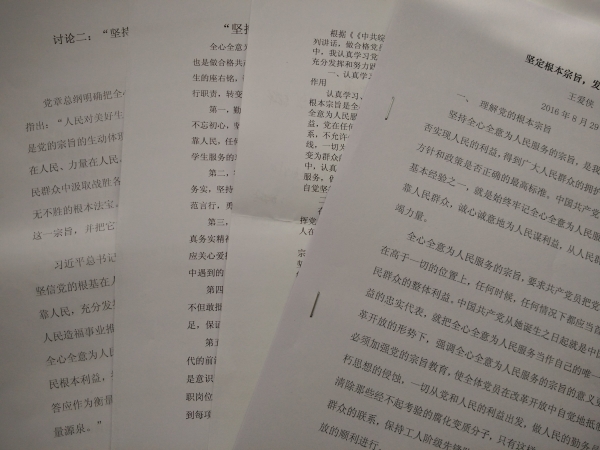 讨论二："坚持
党章总纲明确把全
指出："人民对美好生
是党的宗旨的生动体现
在人民、力量在人民
民群众中汲取战胜各
无不胜的根本法宝,
这一宗旨，并把它
习近平总书记
坚信党的根基在人
靠人民，充分发
人民造福事业推
全心全意为人民
民根本利益，
答应作为衡量
量源泉。"
"坚持
全心全意为
也是做合格共
生的座右铭，
行职责，转变
第一，勤
不忘初心，
靠人民，任何
学生服务的
第二，
务实，坚持
范言行，勇
第三，
真务实精神
应关心爱
中遇到的
第四
不但敢
足，保证
第五
代的前
是意识
职岗位
到每项
根据《《中共皖
列讲话，做合格党员
中，我认真学习党
充分发挥和努力践
一、认真学习、
作用
认真学习、
根本宗旨是全心
全意为人民服务
益，党在任何
系，不允许
线，一切为
变为群众
中，认真
服务，
自觉坚
坚定根本宗旨，发
王爱侠
2016年8月29
一、 理解党的根本宗旨
坚持全心全意为人民服务的宗旨，是我
否实现人民的利益，得到广大人民群众的拥护
方针和政策是否正确的最高标准。中国共产党
基本经验之一，就是始终牢记全心全意为人民服
靠人民群众，诚心诚意地为人民谋利益，从人民群
竭力量。
全心全意为人民服务的宗旨，要求共产党员把党
在高于一切的位置上，任何时候，任何情况下都应当首
民群众的整体利益。中国共产党从她诞生之日起就是中国
益的忠实代表，就把全心全意为人民服务当作自己的唯一
革开放的形势下，强调全心全意为人民服务的宗旨的意义更
必须加强党的宗旨教育，使全体党员在改革开放中自觉地抵
朽思想的侵蚀，一切从党和人民的利益出发，做人民的勤务
清除那些经不起考验的腐化变质分子，只有这样
群众的联系，保持工人阶级先锋队
放的顺利进行。